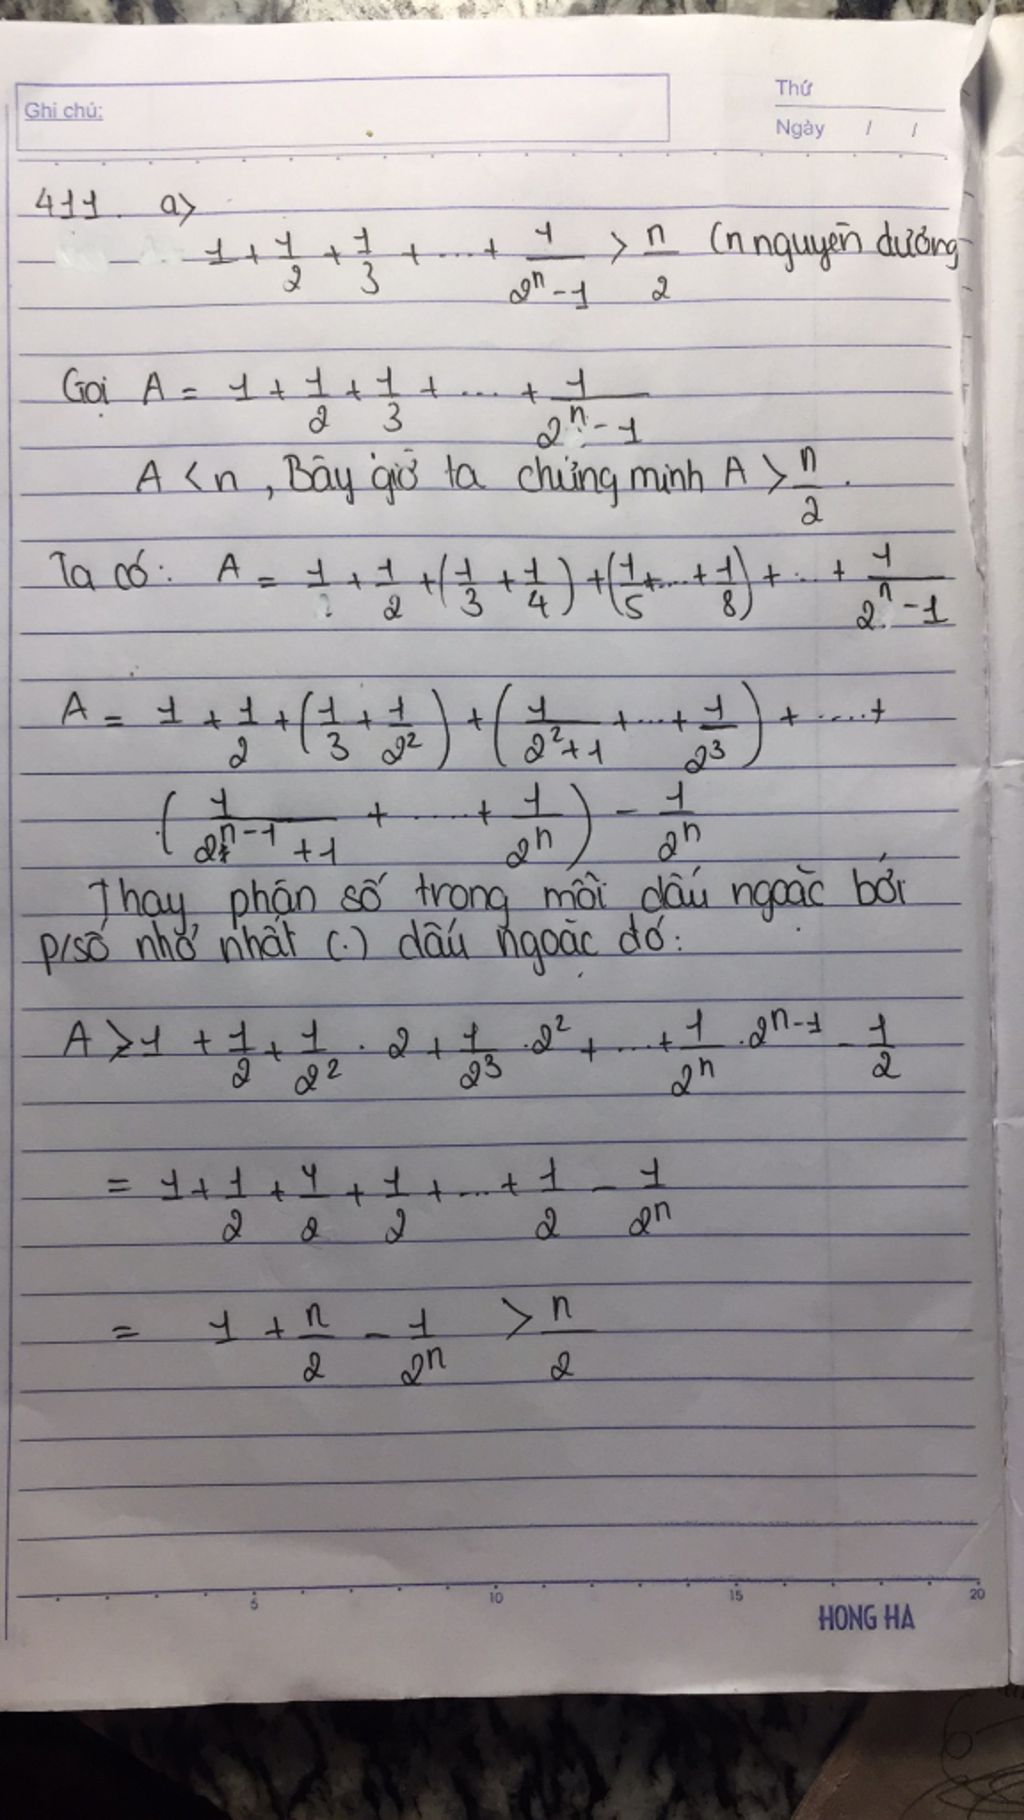 Ghi chú:
Thứ
Ngày / /
411. a>
1 + 1/2 + 1/3 + ... + 1/(2^n - 1) > n/2 (n nguyên dương
Gọi A = 1 + 1/2 + 1/3 + .... + 1/(2^n - 1)
A < n, Bây giờ ta chứng minh A > n/2.
Ta có: A = 1 + 1/2 + (1/3 + 1/4) + (1/5 + ... + 1/8) + ... + 1/(2^n - 1)
A = 1 + 1/2 + (1/3 + 1/2^2) + (1/(2^2 + 1) + ... + 1/2^3) + ..... +
(1/(2^(n-1) + 1) + ..... + 1/2^n) - 1/2^n
Thay phân số trong mỗi dấu ngoặc bởi
p/số nhỏ nhất (.) dấu ngoặc đó:
A > 1 + 1/2 + 1/2^2 . 2 + 1/2^3 . 2^2 + ... + 1/2^n . 2^(n-1) - 1/2
= 1 + 1/2 + 1/2 + 1/2 + ... + 1/2 - 1/2^n
= 1 + n/2 - 1/2^n > n/2
5 10 15 20
HONG HA